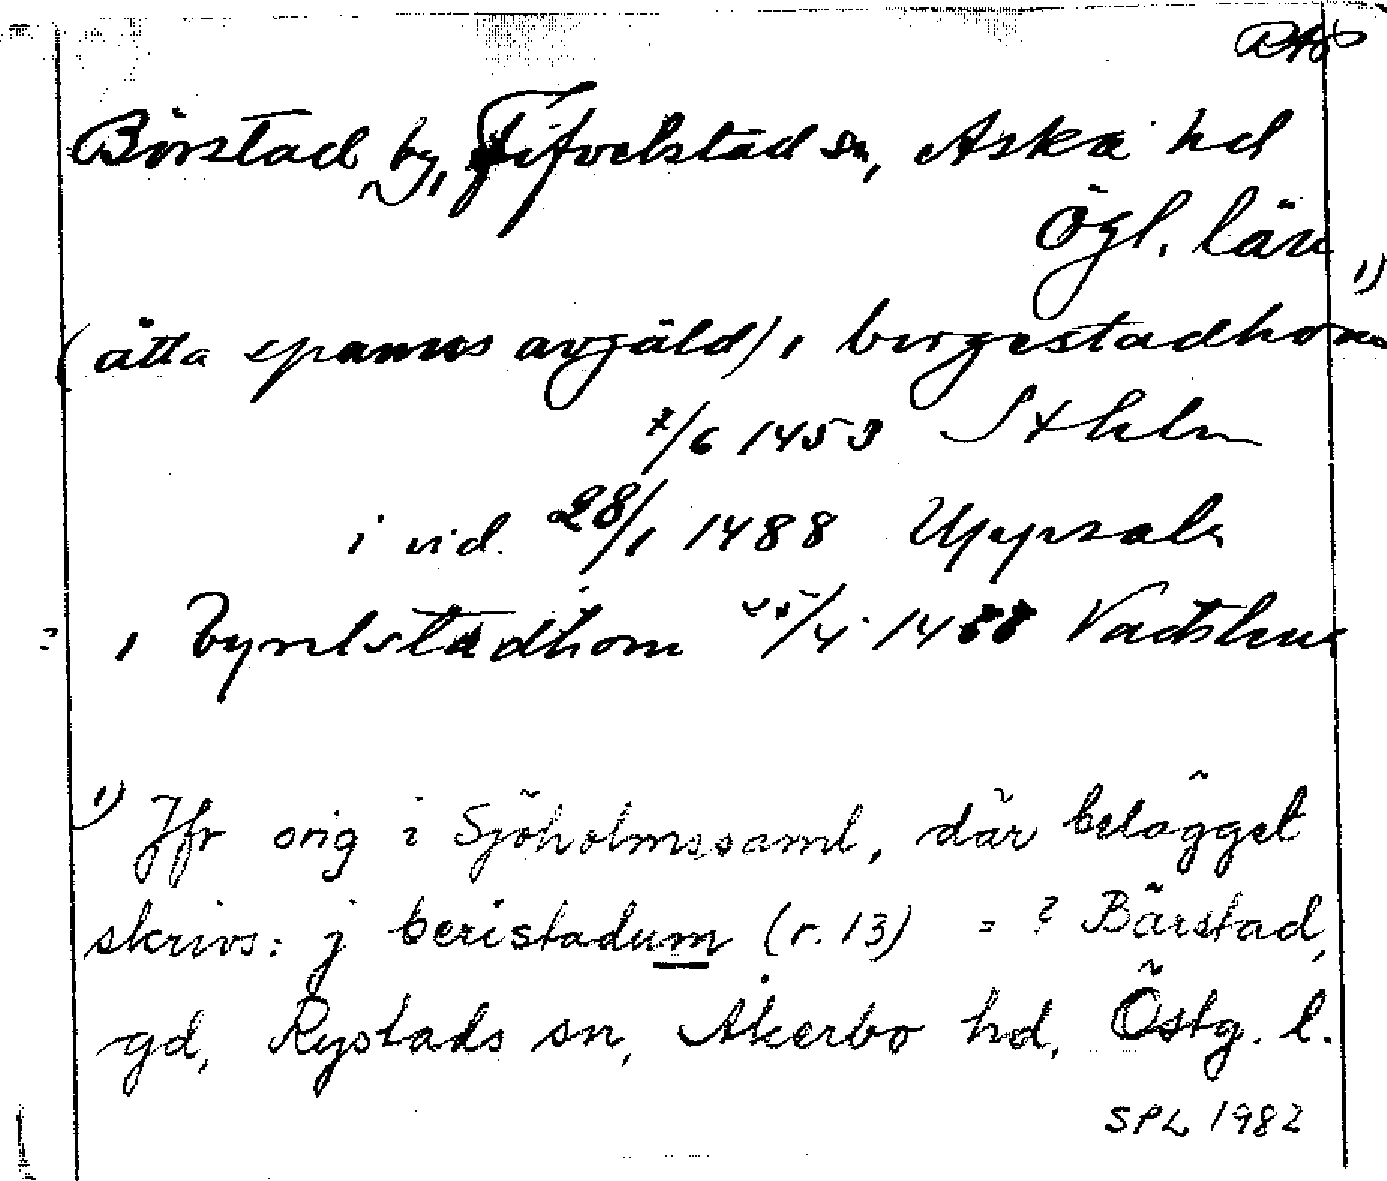 Börstad by, Fifvelstad sn, Aska hd
Ögl. län 1)
(åtta spanns avgäld), i birgestadhom
/6 1453 Sthlm
i vid. 28/1 1488 Uppsala
? i byrelstadhom /4 1488 Vadstena
1) Jfr orig i Sjöholmssaml, där belägget
skrivs: j beristadum (r. 13) = ? Bärstad,
gd, Rystads sn, Åkerbo hd, Östg. l.
SPL 1982